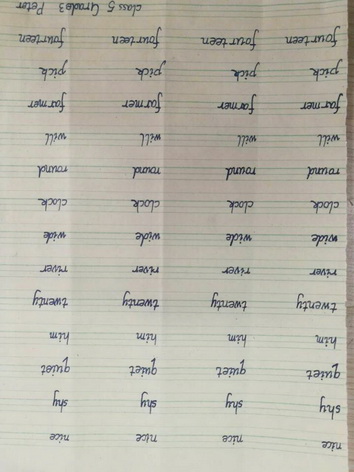 nice nice nice nice
shy shy shy shy
quiet quiet quiet quiet
him him him him
twenty twenty twenty twenty
river river river river
wide wide wide wide
clock clock clock clock
round round round round
will will will will
farmer farmer farmer farmer
pick pick pick pick
fourteen fourteen fourteen fourteen
class 5 Grade3 Peter